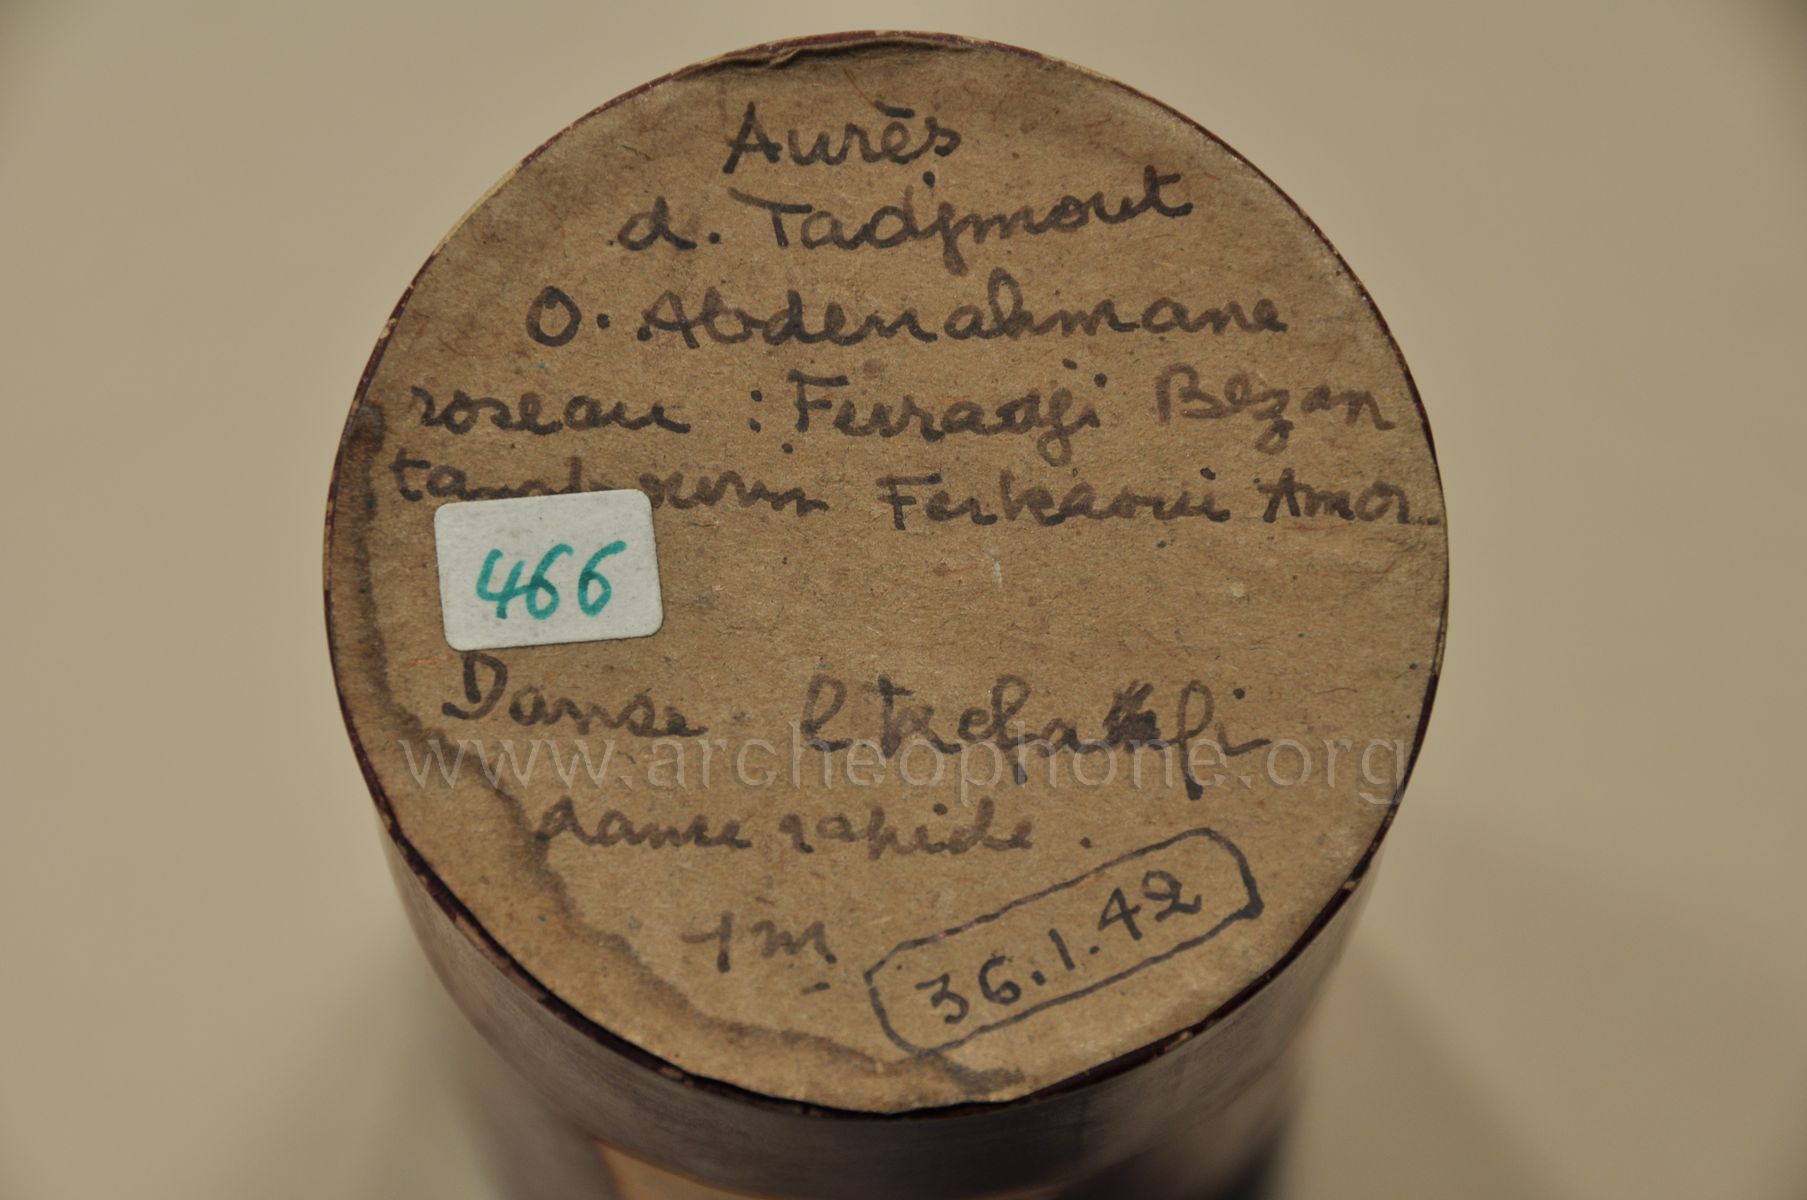 Aurès
d. Tadjmout
O. Abderrahmane
roseau : Ferradji Bezan
tambourin Ferkaoui Amor
466
Danse
www.archeophone.org
danse rapide.
1 m
36.1.42